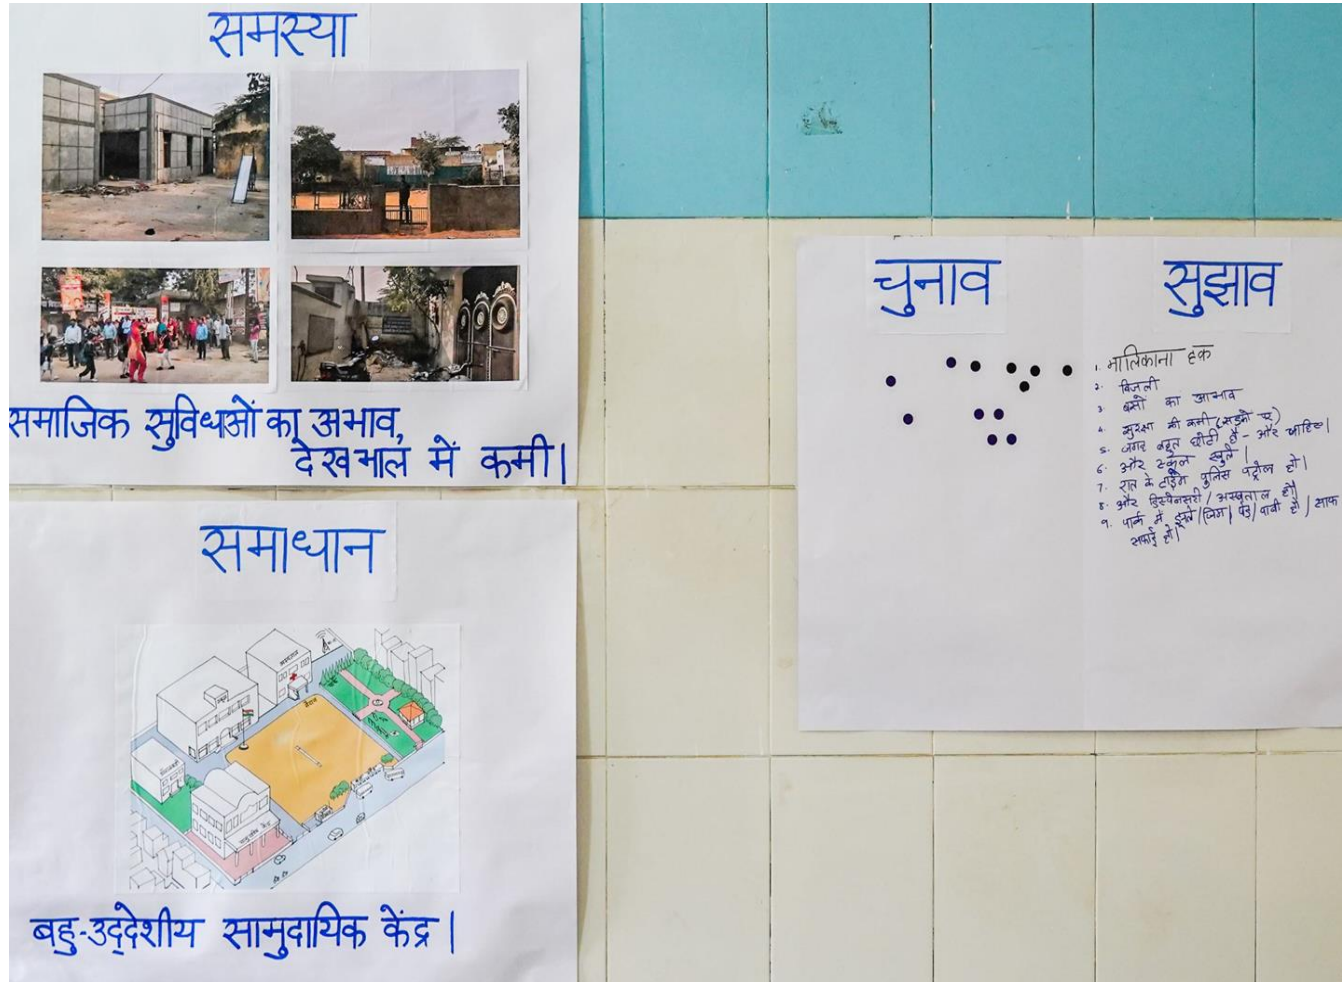 समस्या
समाजिक सुविधाओं का अभाव,
देखभाल में कमी।
समाधान
बहु-उद्देशीय सामुदायिक केंद्र।
चुनाव
सुझाव
1. मालिकाना हक
2. बिजली
3. बसों का आभाव
4. सुरक्षा की कमी (सड़कों पर)
5. जगह बहुत छोटी है - और चाहिए।
6. और स्कूल खुलें।
7. रात के टाईम पुलिस पेट्रोल हो।
8. और डिस्पेनसरी / अस्पताल हो।
9. पार्क में झूले / जिम / पेड़ / पानी हो / साफ
सफाई हो।